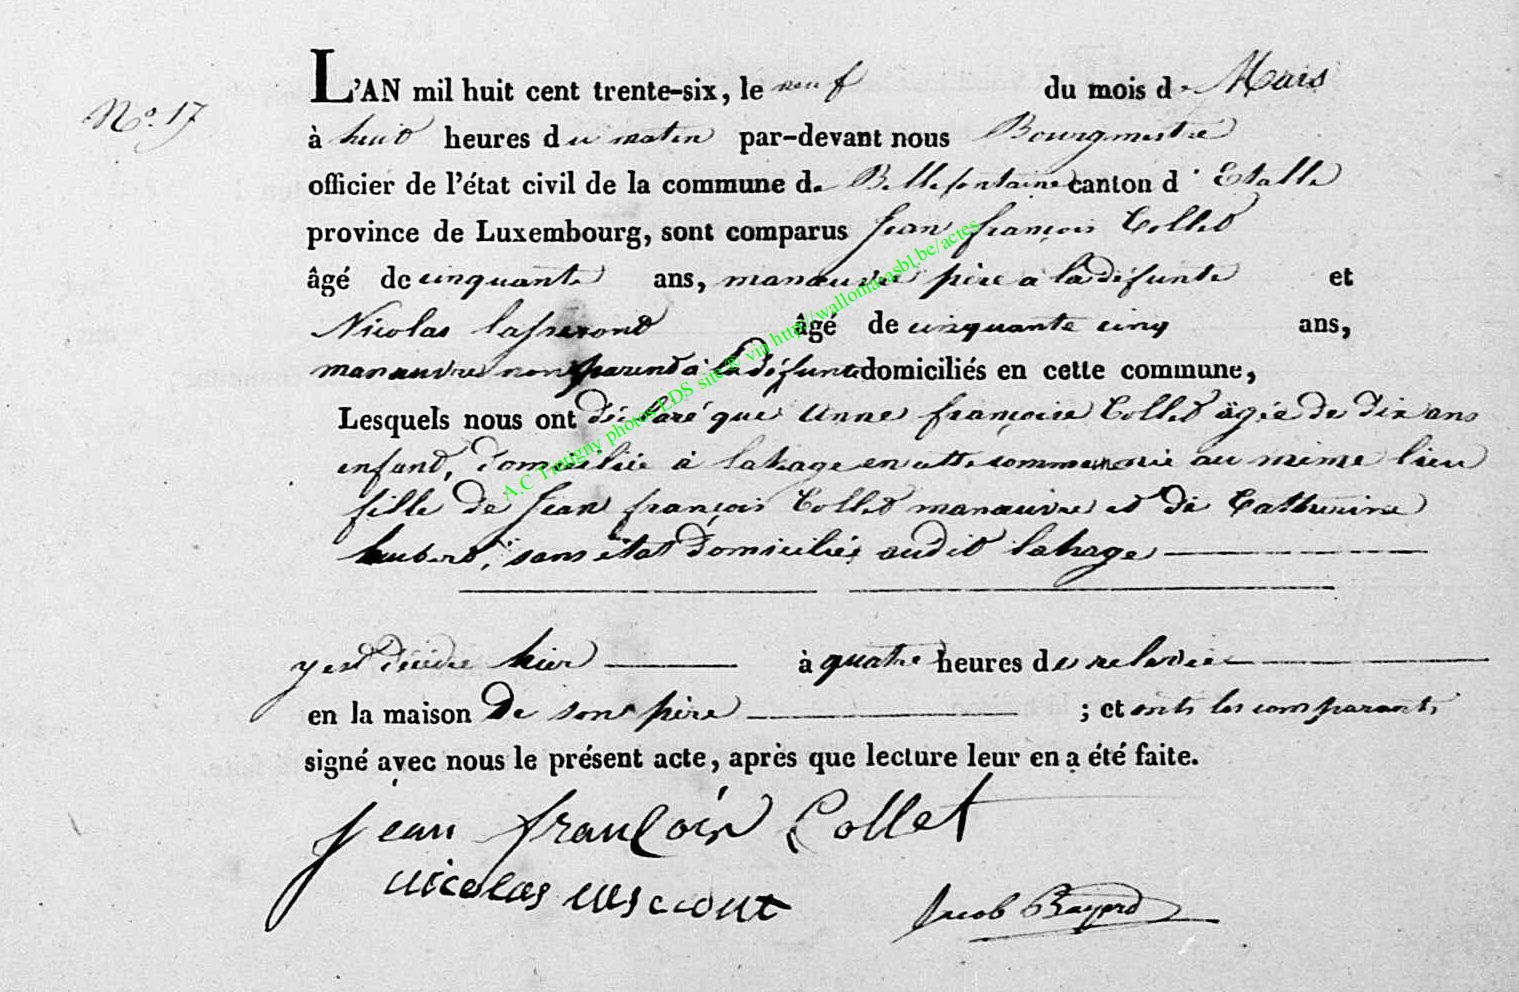 N.º 17
L'AN mil huit cent trente-six, le neuf du mois de Mars
à huit heures du matin par-devant nous Bourgmestre
officier de l'état civil de la commune de Bellefontaine canton d'Etalle
province de Luxembourg, sont comparus Jean françois Collet
âgé de cinquante ans, manœuvre père à la défunte et
Nicolas âgé de cinquante cinq ans,
manœuvre non parent à la défunte domiciliés en cette commune,
Lesquels nous ont déclaré que Anne françoise Collet âgée de dix ans
enfant, domiciliée à lahage en cette commune née au même lieu
fille de Jean françois Collet manœuvre et de Catherine
hubert, sans état domiciliés audit lahage
y est décédée hier à quatre heures de relevée
en la maison de son père ; et ont les comparants
signé avec nous le présent acte, après que lecture leur en a été faite.
jean françois Collet
nicolas
Jacob Bayard
A.C Tintigny photos EDS site @ via http://wallonia.asbl.be/actes